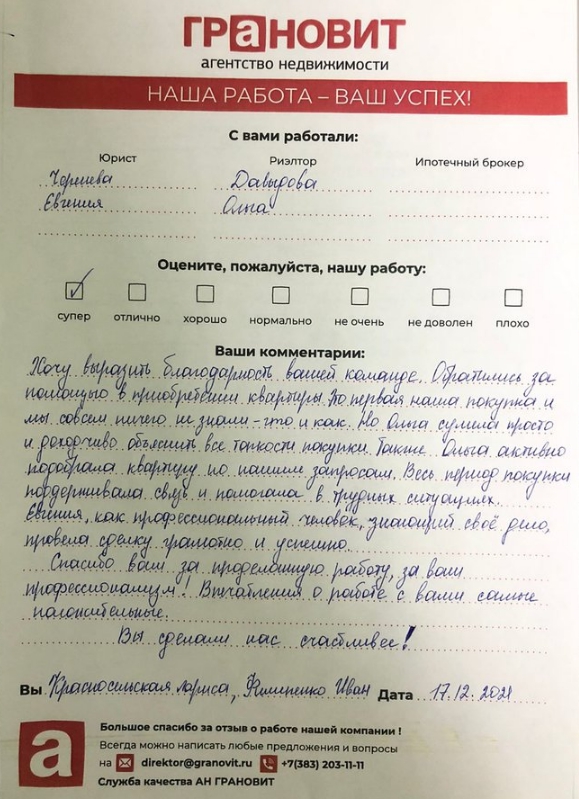 ГРаНОВИТ
агентство недвижимости
НАША РАБОТА – ВАШ УСПЕХ!
С вами работали:
Юрист Риэлтор Ипотечный брокер
Давыдова
Евгения Ольга
Оцените, пожалуйста, нашу работу:
супер отлично хорошо нормально не очень не доволен плохо
Ваши комментарии:
Хочу выразить благодарность вашей команде. Обратились за
помощью в приобретении квартиры. Это первая наша покупка и
мы совсем ничего не знали - что и как. Но Ольга сумела просто
и доходчиво объяснить все тонкости покупки. Также Ольга активно
подобрала квартиру по нашим запросам. Весь период покупки
поддерживала связь и помогала в трудных ситуациях.
Евгения, как профессиональный человек, знающий своё дело,
провела сделку грамотно и успешно.
Спасибо вам за проделанную работу, за ваш
профессионализм! Впечатления о работе с вами самые
положительные.
Вы сделали нас счастливее!
Вы Лариса, Иван Дата 17.12.2021
а
Большое спасибо за отзыв о работе нашей компании !
Всегда можно написать любые предложения и вопросы
на direktor@granovit.ru +7(383) 203-11-11
Служба качества АН ГРАНОВИТ